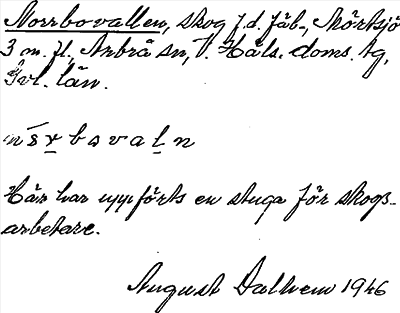 Norrbovallen, skog f.d. fäb., Mörtsjö
3 m.fl., Arbrå sn, V. Häls. doms. tg,
Gvl. län.
Här har uppförts en stuga för skogs-
arbetare.
August Dalhem 1946